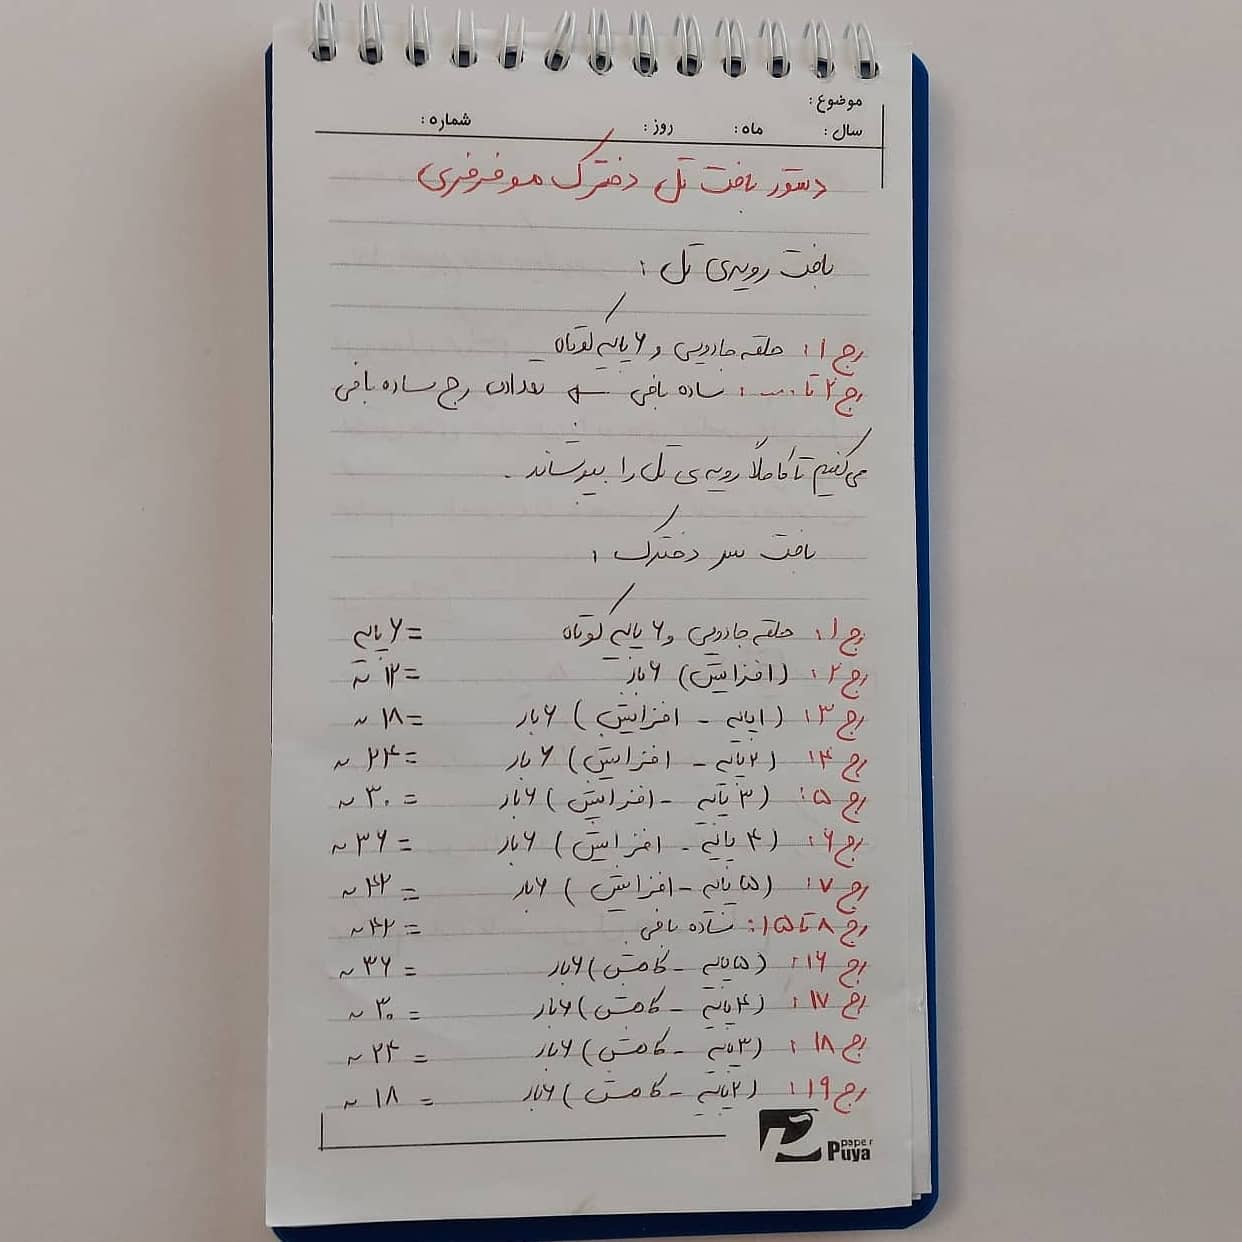 موضوع :
سال : ماه : روز : شماره :
دستور بافت تل دخترک مو فرفری
بافت رویه‌ی تل :
رج ۱ : حلقه جادویی و ۶ پایه کوتاه
رج ۲ تا .... : ساده بافی تعدادی رج ساده بافی
می‌کنیم تا کاملاً رویه ی تل را بپوشاند .
بافت سر دخترک :
رج ۱ : حلقه جادویی و ۶ پایه کوتاه = ۶ پایه
رج ۲ : (افزایش) ۶ بار = ۱۲ پـ
رج ۳ : (۱ پایه - افزایش) ۶ بار = ۱۸ ~
رج ۴ : (۲ پایه - افزایش) ۶ بار = ۲۴ ~
رج ۵ : (۳ پایه - افزایش) ۶ بار = ۳۰ ~
رج ۶ : (۴ پایه - افزایش) ۶ بار = ۳۶ ~
رج ۷ : (۵ پایه - افزایش) ۶ بار = ۴۲ ~
رج ۸ تا ۱۵ : ساده بافی = ۴۲ ~
رج ۱۶ : (۵ پایه - کاهش) ۶ بار = ۳۶ ~
رج ۱۷ : (۴ پایه - کاهش) ۶ بار = ۳۰ ~
رج ۱۸ : (۳ پایه - کاهش) ۶ بار = ۲۴ ~
رج ۱۹ : (۲ پایه - کاهش) ۶ بار = ۱۸ ~
paper
Puya